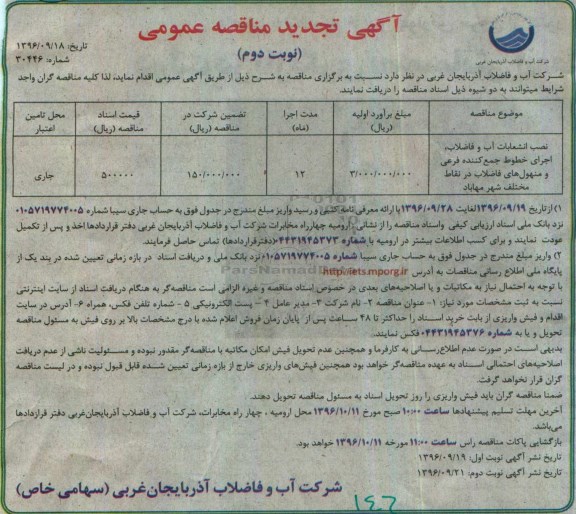 آگهی تجدید مناقصه عمومی
(نوبت دوم)
تاریخ: ۱۳۹۶/۰۹/۱۸
شماره: ۳۰۴۴۶
شرکت آب و فاضلاب آذربایجان غربی
شرکت آب و فاضلاب آذربایجان غربی در نظر دارد نسبت به برگزاری مناقصه به شرح ذیل از طریق آگهی عمومی اقدام نماید، لذا کلیه مناقصه گران واجد
شرایط میتوانند به دو شیوه ذیل اسناد مناقصه را دریافت نمایند.
موضوع مناقصه
مبلغ برآورد اولیه (ریال)
مدت اجرا (ماه)
تضمین شرکت در مناقصه (ریال)
قیمت اسناد مناقصه (ریال)
محل تامین اعتبار
نصب انشعابات آب و فاضلاب، اجرای خطوط جمع‌کننده فرعی و منهول‌های فاضلاب در نقاط مختلف شهر مهاباد
۳/۰۰۰/۰۰۰/۰۰۰
۱۲
۱۵۰/۰۰۰/۰۰۰
۵۰۰۰۰۰
جاری
۱) از تاریخ ۱۳۹۶/۰۹/۱۹ لغایت ۱۳۹۶/۰۹/۲۸ با ارائه معرفی نامه کتبی و رسید واریز مبلغ مندرج در جدول فوق به حساب جاری سیبا شماره ۰۱۰۵۷۱۹۷۷۴۰۰۵
نزد بانک ملی اسناد ارزیابی کیفی واسناد مناقصه را از نشانی: ارومیه چهارراه مخابرات شرکت آب و فاضلاب آذربایجان غربی دفتر قراردادها اخذ و پس از تکمیل
عودت نمایند و برای کسب اطلاعات بیشتر در ارومیه با شماره ۰۴۴۳۱۹۴۵۳۷۳ (دفترقراردادها) تماس حاصل فرمایند.
۲) واریز مبلغ مندرج در جدول فوق به حساب جاری سیبا شماره ۰۱۰۵۷۱۹۷۷۴۰۰۵ نزد بانک ملی و دریافت اسناد در بازه زمانی تعیین شده در بند یک از
پایگاه ملی اطلاع رسانی مناقصات به آدرس http://iets.mporg.ir
با توجه به احتمال نیاز به مکاتبات و یا اصلاحیه‌های بعدی در خصوص اسناد مناقصه و غیره الزامی است مناقصه‌گر به هنگام دریافت اسناد از سایت اینترنتی
نسبت به ثبت مشخصات مورد نیاز: ۱- عنوان مناقصه ۲- نام شرکت ۳- مدیر عامل ۴- پست الکترونیکی ۵- شماره تلفن فکس، همراه ۶- آدرس در سایت
اقدام و فیش واریزی از بابت خرید اسناد را حداکثر تا ۴۸ ساعت پس از پایان زمان فروش اعلام شده با درج مشخصات بالا بر روی فیش به مسئول مناقصه
تحویل و یا به شماره ۰۴۴۳۱۹۴۵۳۷۶ فکس نمایند.
بدیهی است در صورت عدم اطلاع‌رسانی به کارفرما و همچنین عدم تحویل فیش امکان مکاتبه با مناقصه‌گر مقدور نبوده و مسئولیت ناشی از عدم دریافت
اصلاحیه‌های احتمالی اسناد به عهده مناقصه‌گر خواهد بود همچنین فیش‌های واریزی خارج از بازه زمانی تعیین شده قابل قبول نبوده و در لیست مناقصه
گران قرار نخواهد گرفت.
ضمنا مناقصه گران باید فیش واریزی را روز تحویل اسناد به مسئول مناقصه تحویل دهند.
آخرین مهلت تسلیم پیشنهادها ساعت ۱۰:۰۰ صبح مورخ ۱۳۹۶/۱۰/۱۱ محل ارومیه ، چهار راه مخابرات، شرکت آب و فاضلاب آذربایجان‌غربی دفتر قراردادها
می‌باشد.
بازگشایی پاکات مناقصه راس ساعت ۱۱:۰۰ مورخه ۱۳۹۶/۱۰/۱۱ خواهد بود.
تاریخ نشر آگهی نوبت اول: ۱۳۹۶/۰۹/۱۹
تاریخ نشر آگهی نوبت دوم: ۱۳۹۶/۰۹/۲۱
شرکت آب و فاضلاب آذربایجان‌غربی (سهامی خاص)
۱۴۶